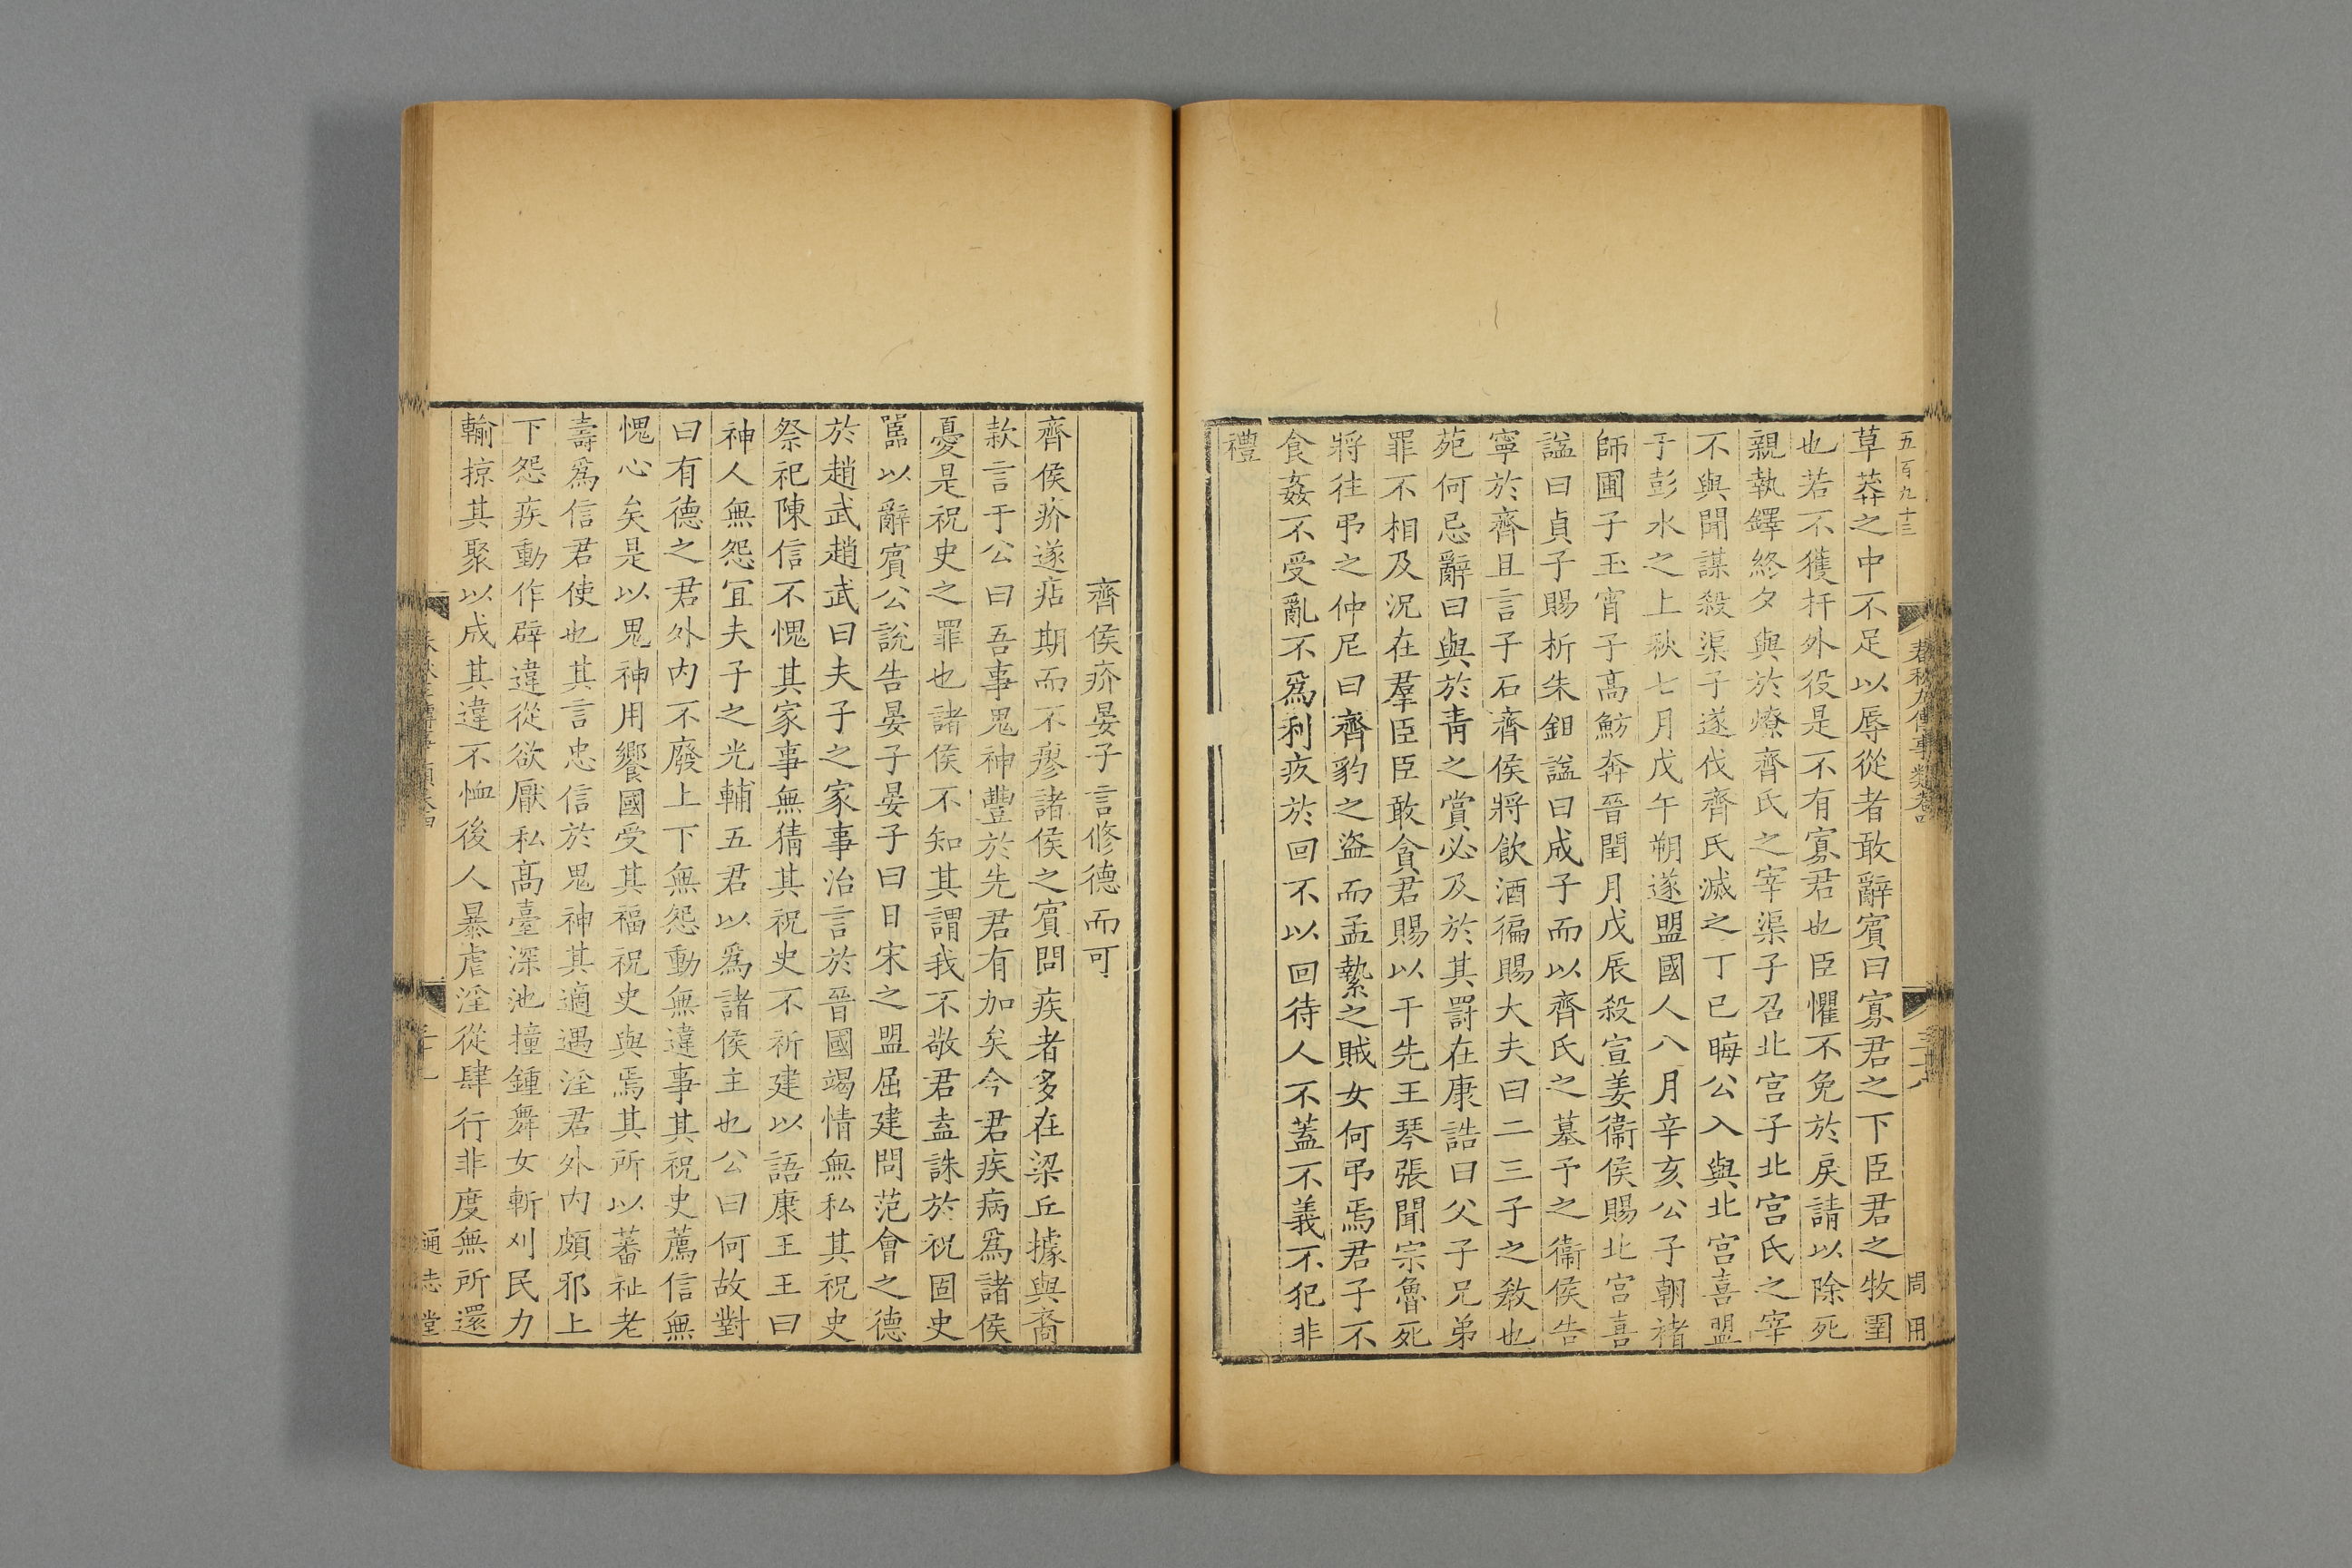 五百九十三
周用
草莽之中不足以辱從者敢辭賓曰寡君之下臣君之牧圉
也若不獲扞外役是不有寡君也臣懼不免於戾請以除死
親執鐸終夕與於燎齊氏之宰渠子召北宮子北宮氏之宰
不與聞謀殺渠子遂伐齊氏滅之丁巳晦公入與北宮喜盟
于彭水之上秋七月戊午朔遂盟國人八月辛亥公子朝褚
師圃子玉宵子高魴奔晉閏月戊辰殺宣姜衞侯賜北宮喜
諡曰貞子賜析朱鉏諡曰成子而以齊氏之墓予之衞侯告
寧於齊且言子石齊侯將飲酒徧賜大夫曰二三子之敎也
苑何忌辭曰與於靑之賞必及於其罰在康誥曰父子兄弟
罪不相及況在羣臣臣敢貪君賜以干先王琴張聞宗魯死
將往弔之仲尼曰齊豹之盜而孟縶之賊女何弔焉君子不
食姦不受亂不爲利疚於回不以回待人不蓋不義不犯非
禮
齊侯疥晏子言修德而可
齊侯疥遂痁期而不瘳諸侯之賓問疾者多在梁丘據與裔
款言于公曰吾事鬼神豐於先君有加矣今君疾病爲諸侯
憂是祝史之罪也諸侯不知其謂我不敬君盍誅於祝固史
嚚以辭賓公說告晏子晏子曰日宋之盟屈建問范會之德
於趙武趙武曰夫子之家事治言於晉國竭情無私其祝史
祭祀陳信不愧其家事無猜其祝史不祈建以語康王王曰
神人無怨宜夫子之光輔五君以爲諸侯主也公曰何故對
曰有德之君外内不廢上下無怨動無違事其祝史薦信無
愧心矣是以鬼神用饗國受其福祝史與焉其所以蕃祉老
壽爲信君使也其言忠信於鬼神其適遇淫君外内頗邪上
下怨疾動作辟違從欲厭私高臺深池撞鍾舞女斬刈民力
輸掠其聚以成其違不恤後人暴虐淫從肆行非度無所還
通志堂